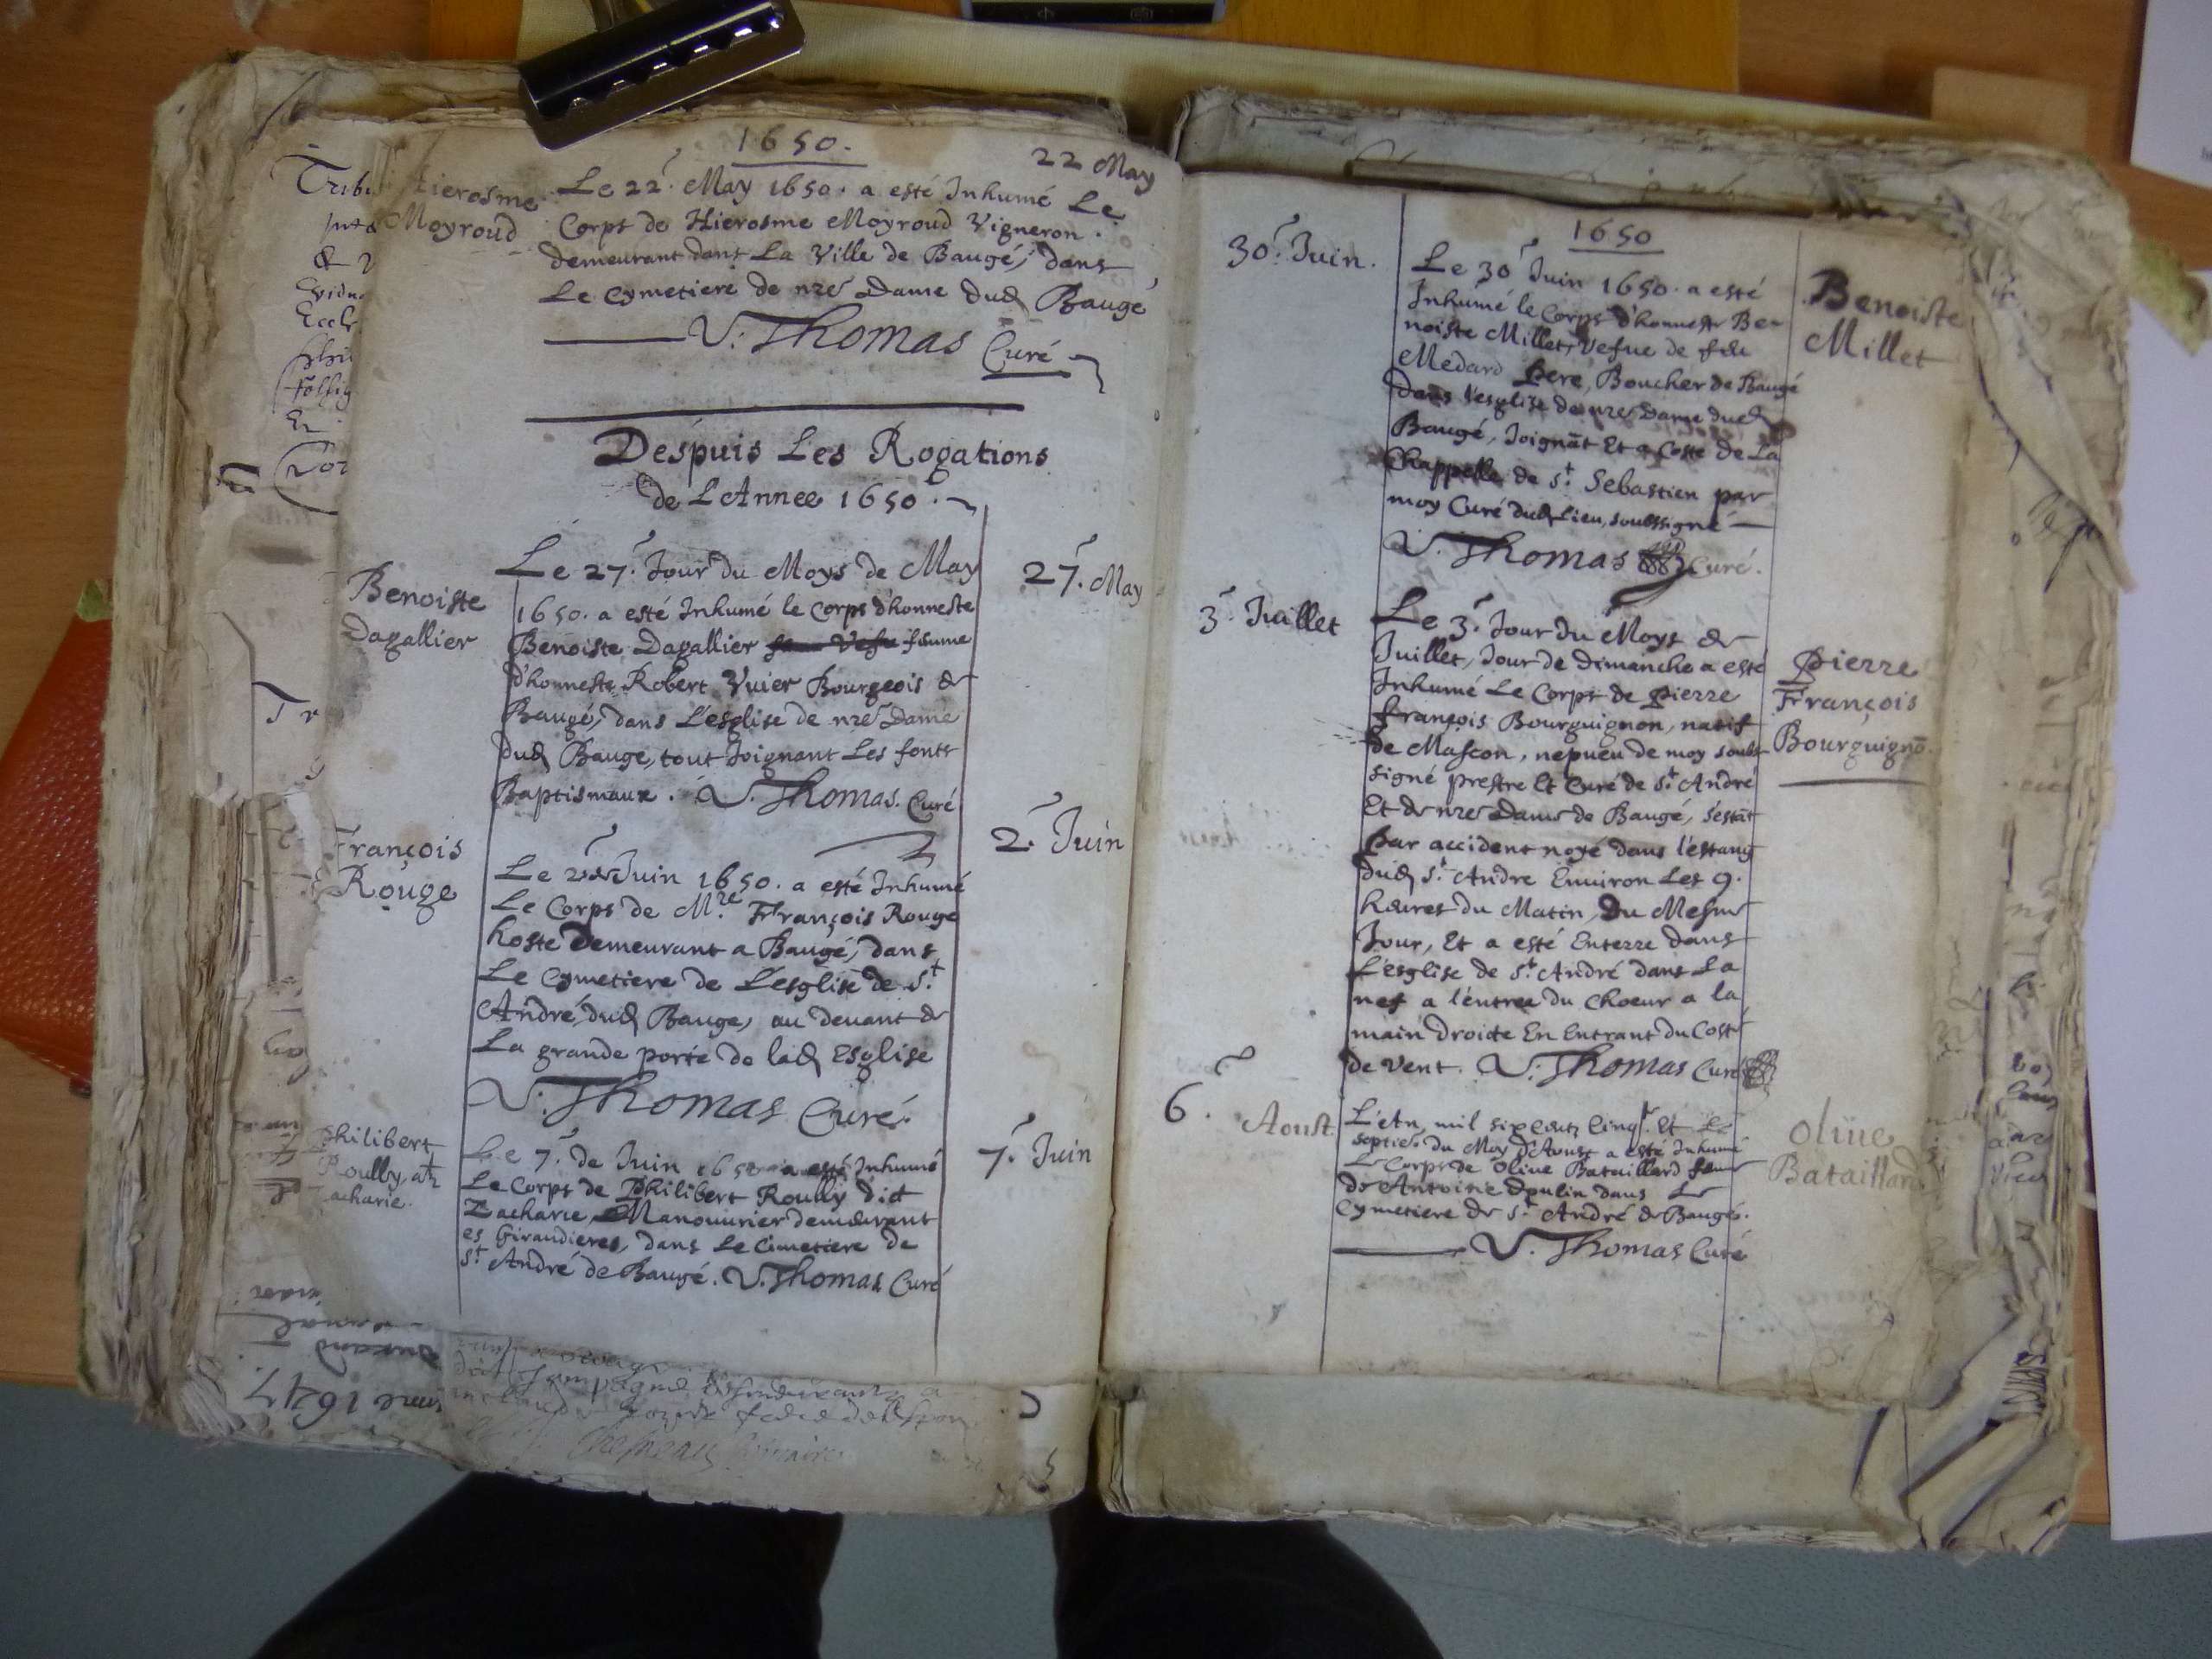 1650.
22 May
Hierosme
Moyroud
Le 22e. May 1650. a esté Inhumé Le
Corps de Hierosme Moyroud Vigneron
demeurant dans La Ville de Baugé, dans
Le Cymetiere de nre Dame dud Baugé
V. Thomas Curé
Despuis Les Rogations
de L'Annee 1650.
Benoiste
Dagallier
27e. May
Le 27e. Jour du Moys de May
1650. a esté Inhumé le corps d'honneste
Benoiste Dagallier feme
d'honneste Robert Vuier Bourgeois de
Baugé, dans L'esglise de nre Dame
dud Baugé, tout Joignant Les fonts
Baptismaux. V. Thomas. Curé
François
Rouge
2e. Juin
Le 2 de Juin 1650. a esté Inhumé
Le Corps de Mre. François Rouge
hoste demeurant a Baugé, dans
Le Cymetiere de L'esglise de St.
André, dud Baugé, au deuant de
La grande porte de lad Esglise
V. Thomas Curé.
Philibert
Roully, at
Zacharie.
7e. Juin
Le 7e. de Juin 1650 a esté Inhumé
Le Corps de Philibert Roully dict
Zacharie Manouurier demeurant
es Giraudieres, dans Le Cimetiere de
St. André de Baugé. V. Thomas Curé
1647
1650
30e. Juin.
Benoiste
Millet
Le 30e Juin 1650. a esté
Inhumé le Corps d'honneste Be-
noiste Millet, Vefue de feu
Medard Peré, Boucher de Baugé
dans l'esglise de nre Dame dud
Baugé, Joignāt Et a Costé de La
Chappelle de St. Sebastien par
moy Curé dud Lieu, soubssigné
V. Thomas Curé.
3e. Juillet
Pierre
François
Bourguignō.
Le 3e. Jour du Moys de
Juillet, Jour de dimanche a esté
Inhumé Le Corps de Pierre
françois Bourguignon, natif
de Mascon, nepueu de moy soubs
signé prestre Et Curé de St. André
Et de nre Dame de Baugé, s'estāt
par accident noyé dans l'estang
dud St. André Enuiron Les 9.
heures du Matin, du Mesme
Jour, Et a esté Enterré dans
L'esglise de St. André dans La
nef a l'entree du Choeur a la
main droicte En Entrant du Costé
de Vent. V. Thomas Curé
6e. Aoust
Oliue
Bataillard
L'An mil six cents cinqte. Et le
septie. du Moy d'Aoust a esté Inhumé
Le Corps de Oliue Bataillard feme
de Antoine dans Le
Cymetiere de St. André de Baugé.
V. Thomas Curé